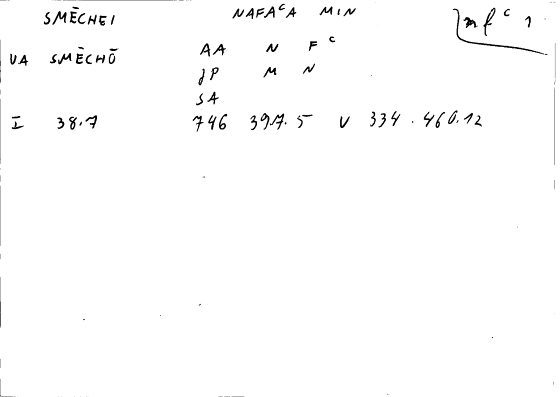 SMĒCHEI NAFAᶜA MIN mfᶜ 1
VA SMĒCHŌ AA N Fᶜ
JP M N
SA
I 38.7 746 397.5 V 334.460.12